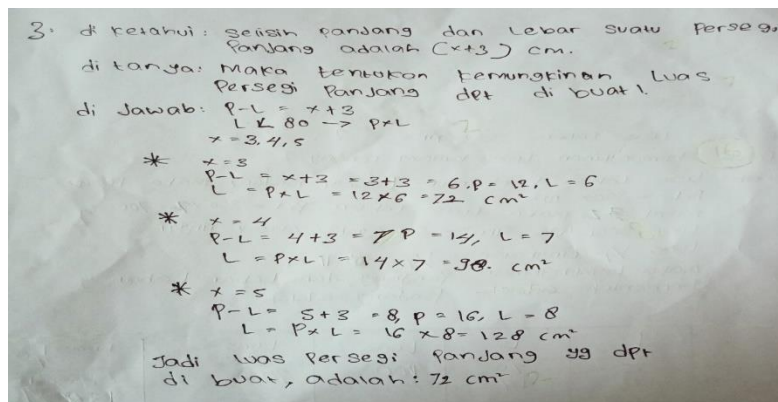 3. di ketahui : Selisih panjang dan Lebar suatu Perseg
Panjang adalah (x+3) cm.
di tanya : Maka tentukan kemungkinan Luas
Persegi Panjang dpt di buat !.
di Jawab : P-L = x+3
L < 80 -> PxL
x = 3, 4, 5
* x = 3
P-L = x+3 = 3+3 = 6. P = 12, L = 6
L = PxL = 12x6 = 72 cm²
* x = 4
P-L = 4+3 = 7, P = 14, L = 7
L = PxL = 14x7 = 98. cm²
* x = 5
P-L = 5+3 = 8, P = 16, L = 8
L = PxL = 16 x 8 = 128 cm²
Jadi luas Persegi Panjang yg dpt
di buat, adalah : 72 cm²